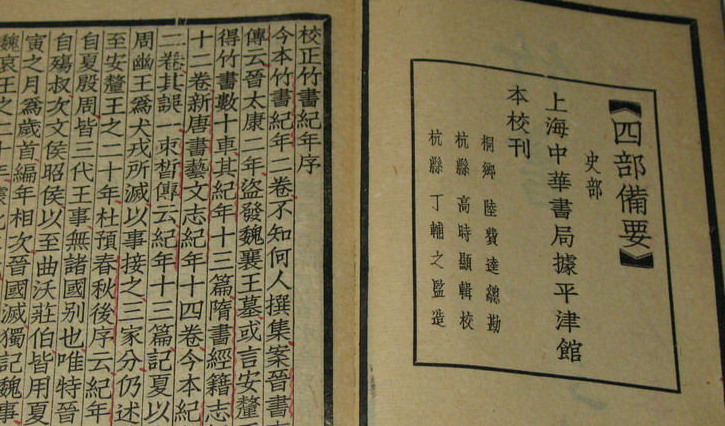 【四部備要】
史部
上海中華書局據平津館
本校刊
桐鄉 陸費逵總勘
杭縣 高時顯輯校
杭縣 丁輔之監造
校正竹書紀年序
今本竹書紀年二卷不知何人撰集案晉書
傳云晉太康二年盜發魏襄王墓或言安釐
得竹書數十車其紀年十三篇隋書經籍志
十二卷新唐書藝文志紀年十四卷今本紀
二卷其誤一束皙傳云紀年十三篇記夏以
周幽王爲犬戎所滅以事接之三家分仍述
至安釐王之二十年杜預春秋後序云紀年
自夏殷周皆三代王事無諸國别也唯特晉
自殤叔次文侯昭侯以至曲沃莊伯皆用夏
寅之月爲歲首編年相次晉國滅獨記魏事
魏哀王之二十年